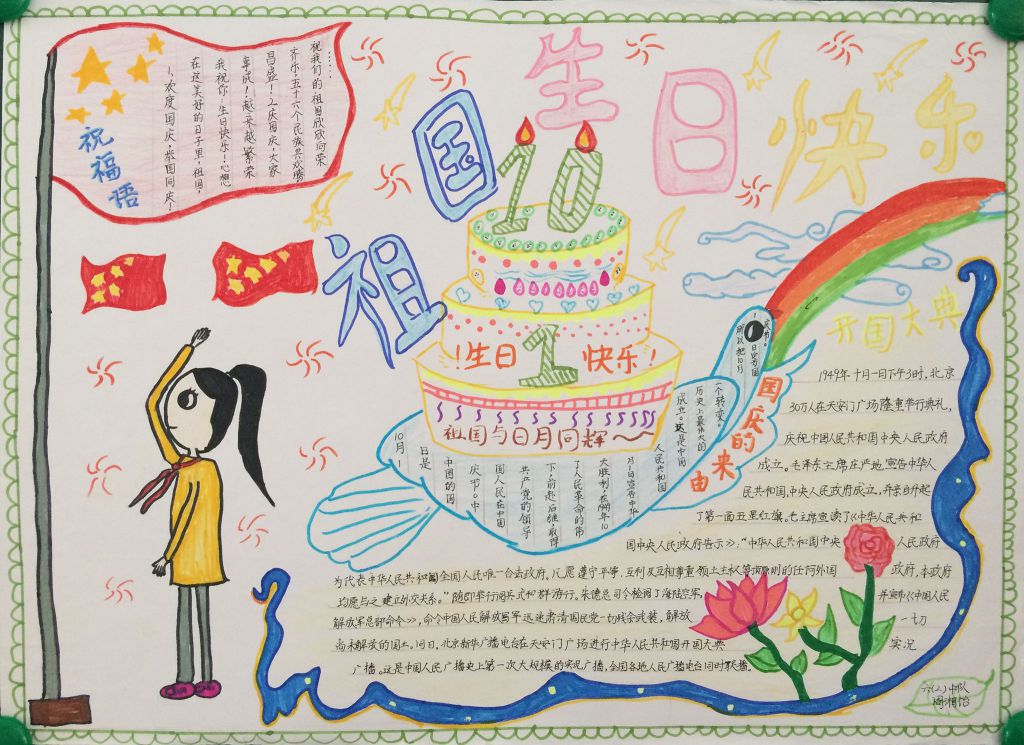 祖国生日快乐
10
1
!生日 快乐!
祖国与日月同辉~~
祝福语
1、欢度国庆,举国同庆!
在这美好的日子里,祖国,
我祝你:生日快乐!心想
事成!越来越繁荣
昌盛!2、庆国庆,大家
齐乐,五十六个民族共欢腾
祝我们的祖国欣欣向荣
……
国庆的来由
10月1
日是
中国的国
庆节。中
国人民在中国
共产党的领导
下,前赴后继,取得
了人民革命的伟
大胜利,在1949年10
月1日宣告中华
人民共和国
成立。这是中国
历史上最伟大的
一个转变。
所以把10月
1日定为国
庆节。
开国大典
1949年十月一日下午3时,北京
30万人在天安门广场隆重举行典礼,
庆祝中国人民共和国中央人民政府
成立。毛泽东主席庄严地宣告中华人
民共和国,中央人民政府成立,并亲自升起
了第一面五星红旗。毛主席宣读了《中华人民共和
国中央人民政府告示》:“中华人民共和国中央 人民政府
为代表中华人民共和国全国人民唯一合法政府,凡愿遵守平等,互利及互相尊重领土主权等原则的任何外国 政府,本政府
均愿与之建立外交关系。”随即举行阅兵式和群众游行。朱德总司令检阅了海陆空军, 并宣布《中国人民
解放军总部命令》,命令中国人民解放军迅速肃清国民党一切残余武装,解放 一切
尚未解放的国土。同日,北京新华广播电台在天安门广场进行中华人民共和国开国大典 实况
广播。这是中国人民广播史上第一次大规模的实况广播,全国各地人民广播电台同时联播。
六(二)中队
周湘怡